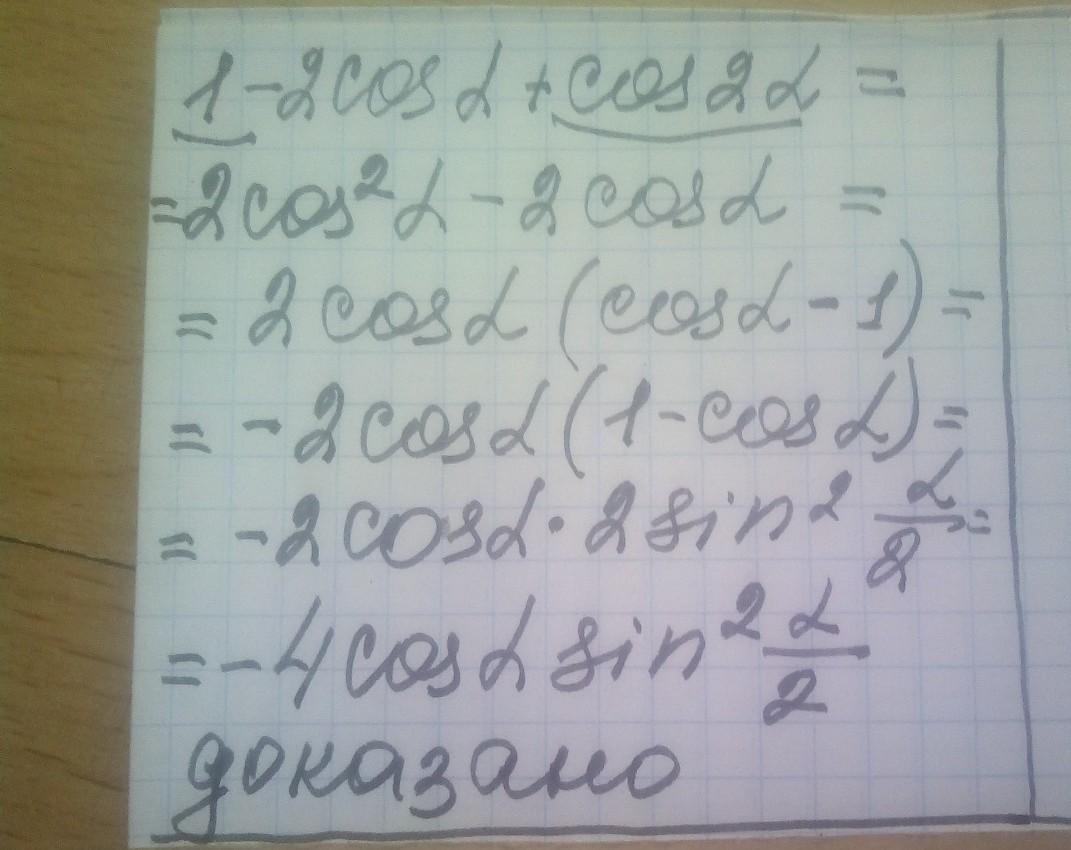 1 - 2cosα + cos2α =
= 2cos²α - 2cosα =
= 2cosα (cosα - 1) =
= -2cosα (1 - cosα) =
= -2cosα · 2sin² α/2 =
= -4cosα sin² α/2
доказано